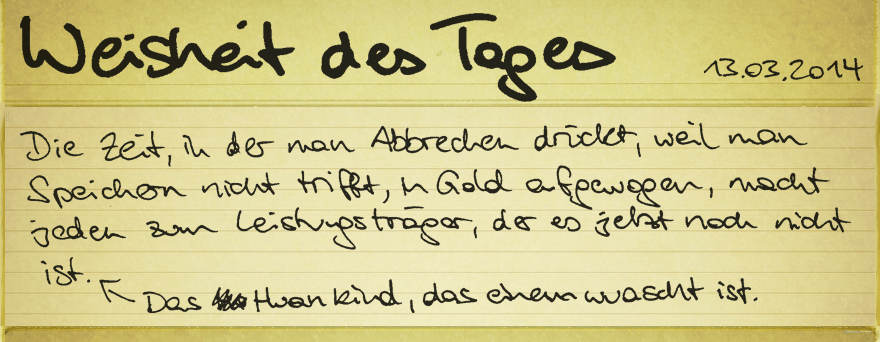 Weisheit des Tages
13.03.2014
Die Zeit, in der man Abbrechen drückt, weil man
Speichern nicht trifft, in Gold aufgewogen, macht
jeden zum Leistungsträger, der es jetzt noch nicht
ist.
Das Huankind, das einem wuascht ist.